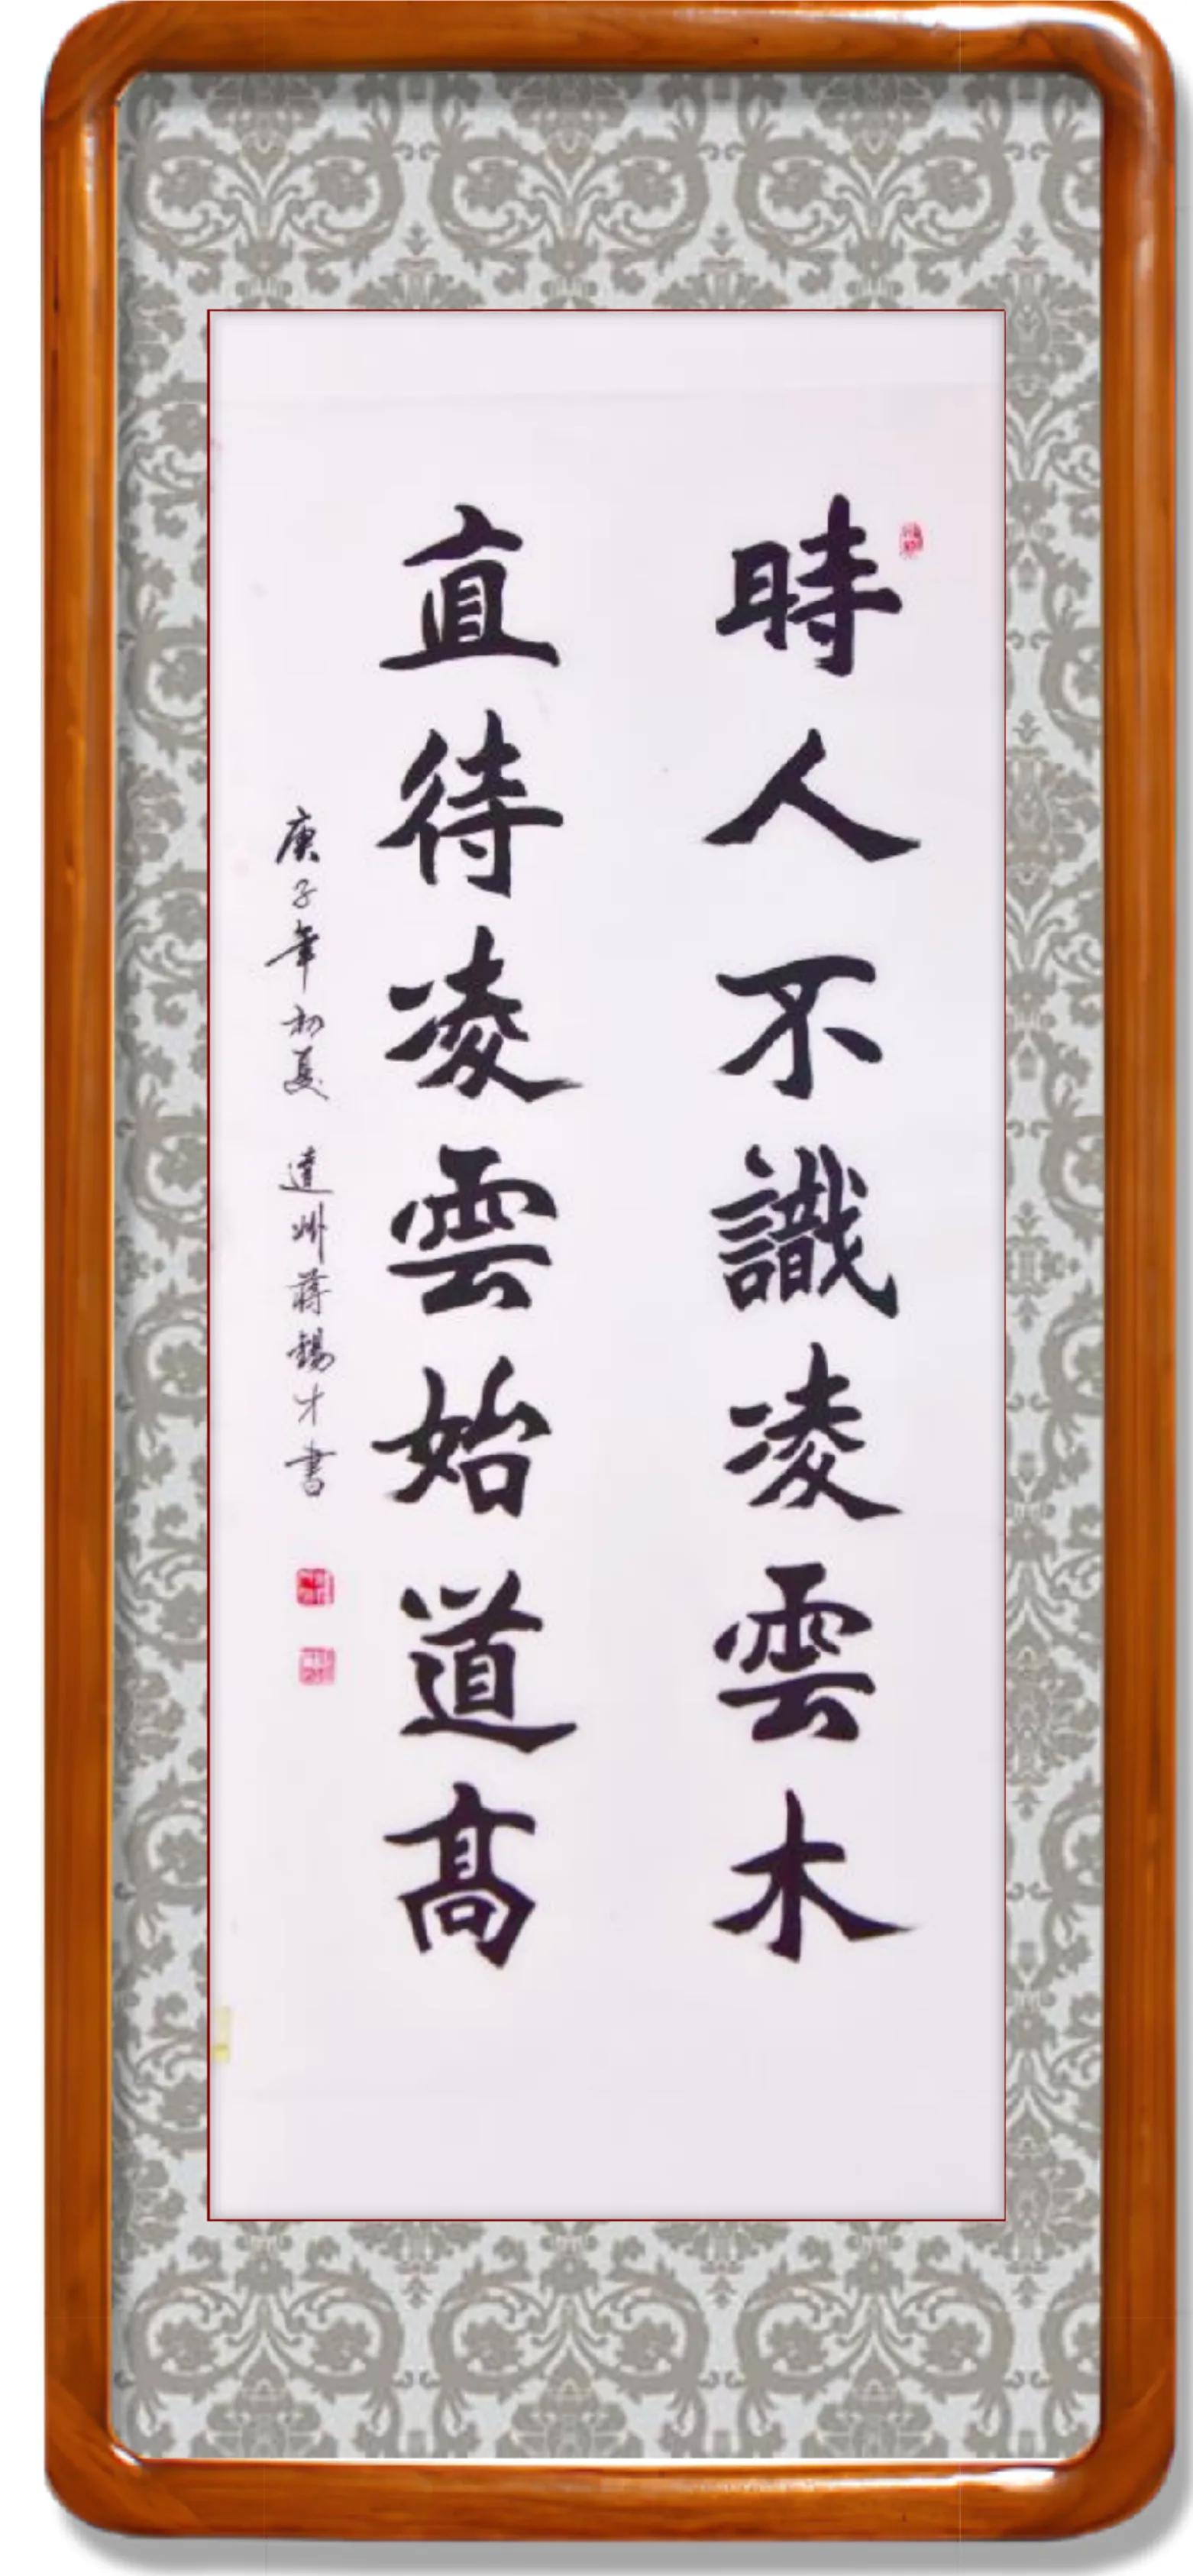 時人不識凌雲木
直待凌雲始道髙
庚子年初夏 達州蔣錫才書